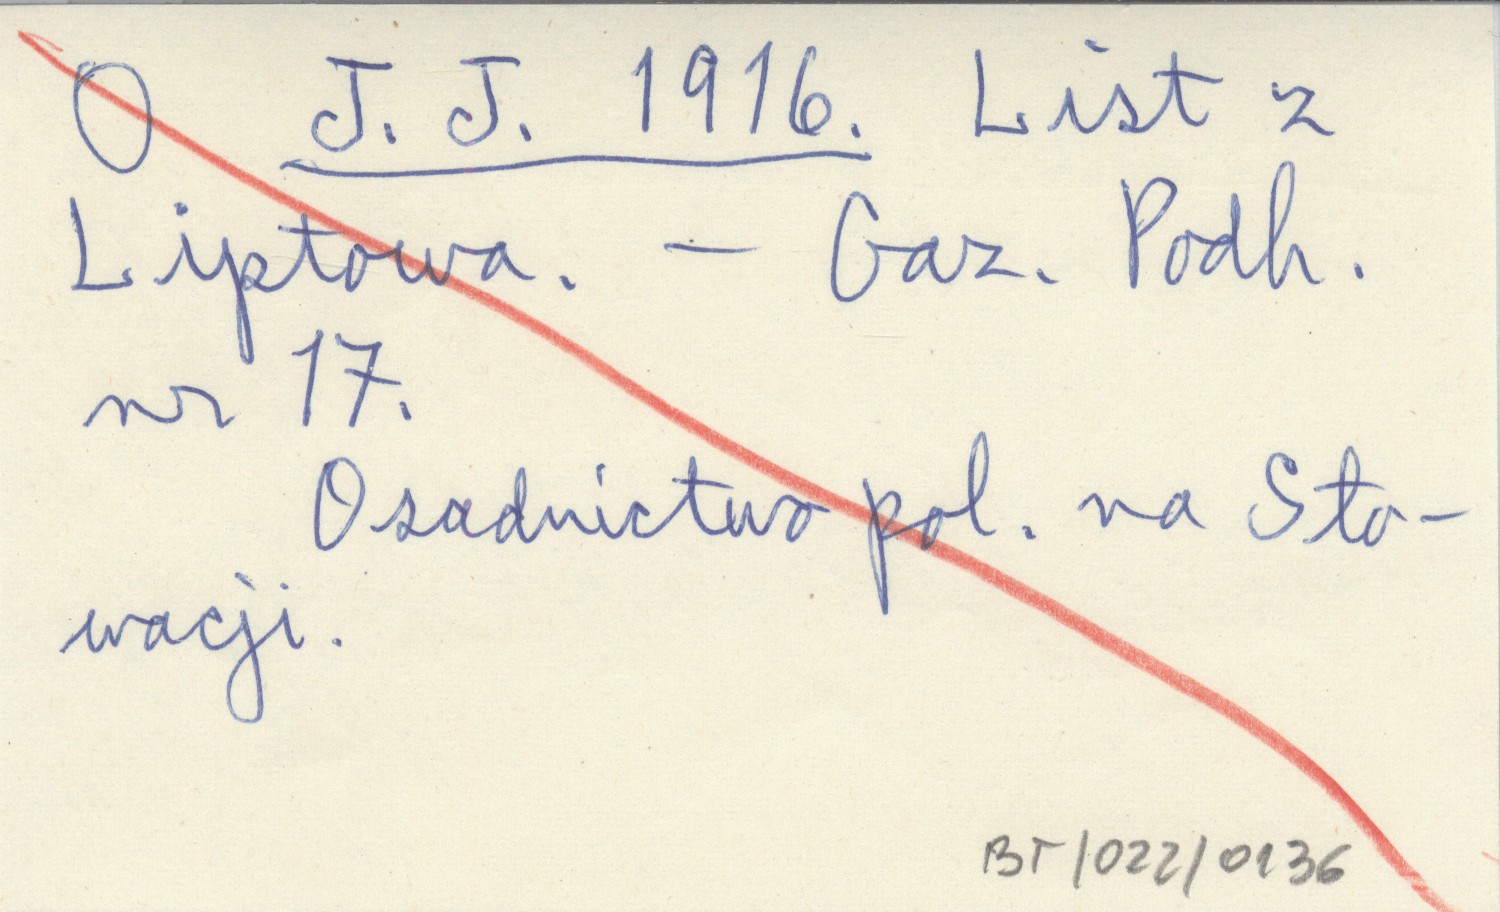 O J. J. 1916. List z
Liptowa. — Gaz. Podh.
nr 17.
Osadnictwo pol. na Sło-
wacji.
BT/022/0136